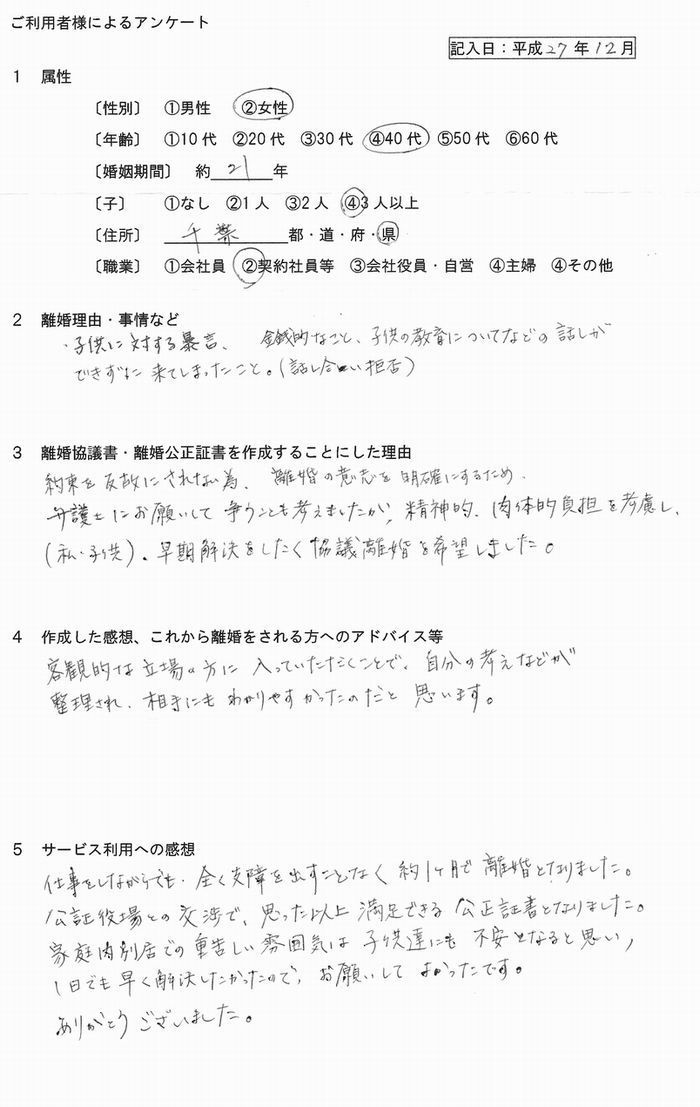 ご利用者様によるアンケート
記入日：平成27年12月
1 属性
〔性別〕 ①男性 ②女性
〔年齢〕 ①10代 ②20代 ③30代 ④40代 ⑤50代 ⑥60代
〔婚姻期間〕 約 21 年
〔子〕 ①なし ②1人 ③2人 ④3人以上
〔住所〕 千葉 都・道・府・県
〔職業〕 ①会社員 ②契約社員等 ③会社役員・自営 ④主婦 ④その他
2 離婚理由・事情など
・子供に対する暴言、金銭的なこと、子供の教育についてなどの話しが
できずに来てしまったこと。(話し合い拒否)
3 離婚協議書・離婚公正証書を作成することにした理由
約束を反故にされない為、離婚の意志を明確にするため、
弁護士にお願いして争うことも考えましたが、精神的、肉体的負担を考慮し、
(私・子供)、早期解決をしたく協議離婚を希望しました。
4 作成した感想、これから離婚をされる方へのアドバイス等
客観的な立場の方に入っていただくことで、自分の考えなどが
整理され、相手にもわかりやすかったのだと思います。
5 サービス利用への感想
仕事をしながらでも、全く支障を出すことなく約1ヶ月で離婚となりました。
公証役場との交渉で、思った以上満足できる公正証書となりました。
家庭内別居での重苦しい雰囲気は子供達にも不安となると思い、
1日でも早く解決したかったので、お願いしてよかったです。
ありがとうございました。